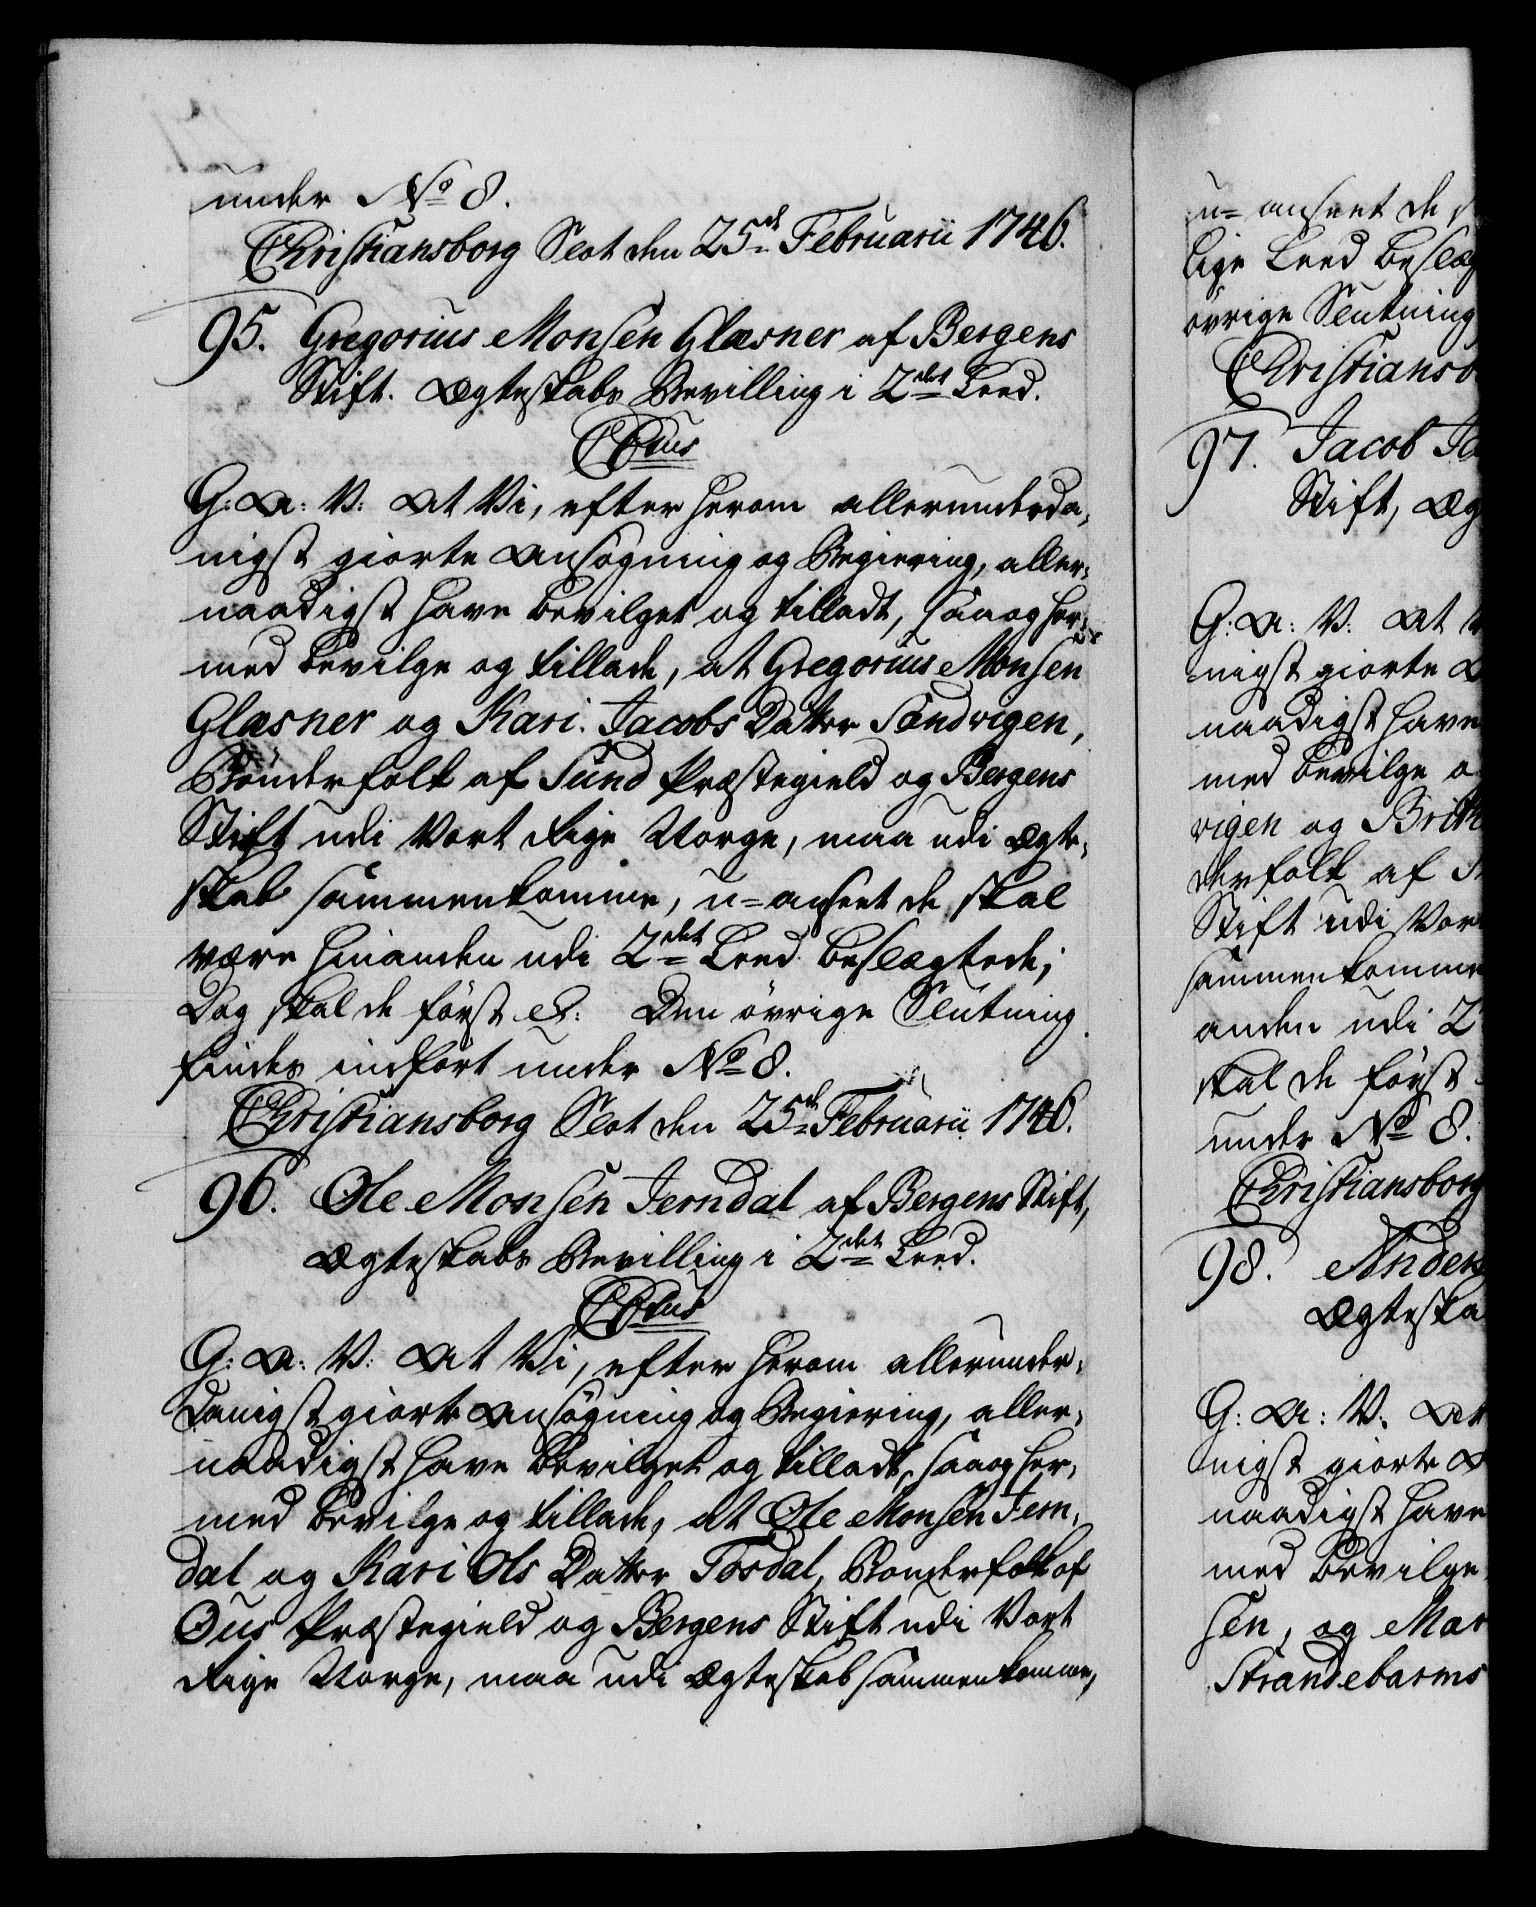 under No 8.
Christiansborg Slot den 25de Februarii 1746.
95. Gregorius Monsen Glæsner af Bergens
Stift. Ægteskabs Bevilling i 2det Leed.
CCtus
G: A: V: At Vi, efter herom allerunderda-
nigst giorte Ansøgning og Begiering, aller-
naadigst have bevilget og tilladt, saa og her-
med bevilge og tillade, at Gregorius Monsen
Glæsner og Kari Jacobs Datter Sandvigen,
Bønderfolk af Sund Præstegield og Bergens
Stift udi Vort Rige Norge, maa udi Ægte-
skab sammenkomme, u-anseet de skal
være hinanden udi 2det Leed beslægtede;
Dog skal de først &. Den övrige Slutning
findes indfört under No 8.
Christiansborg Slot den 25de Februarii 1746.
96. Ole Monsen Jerndal af Bergens Stift,
Ægteskabs Bevilling i 2det Leed.
CCtus
G: A: V: At Vi, efter herom allerunder-
danigst giorte Ansøgning og Begiering, aller-
naadigst have bevilget og tilladt, saa og her-
med bevilge og tillade, at Ole Monsen Jern-
dal og Kari Ols Datter Tosdal, Bønderfolk af
Ous Præstegield og Bergens Stift udi Vort
Rige Norge, maa udi Ægteskab sammenkomme,
u- anseet de
lige Leed beslæg
övrige Slutning
Christiansb
97. Jacob Ja
Stift, Æg
G: A: V: At V
nigst giorte A
naadigst have
med bevilge o
vigen og Brith
derfolk af
Stift udi Vor
sammenkomme
anden udi 2
skal de først
under No 8.
Christiansborg
98. Anders
Ægteska
G: A: V: At
nigst giorte A
naadigst have
med bevilge
sen, og Mar
Strandebarms